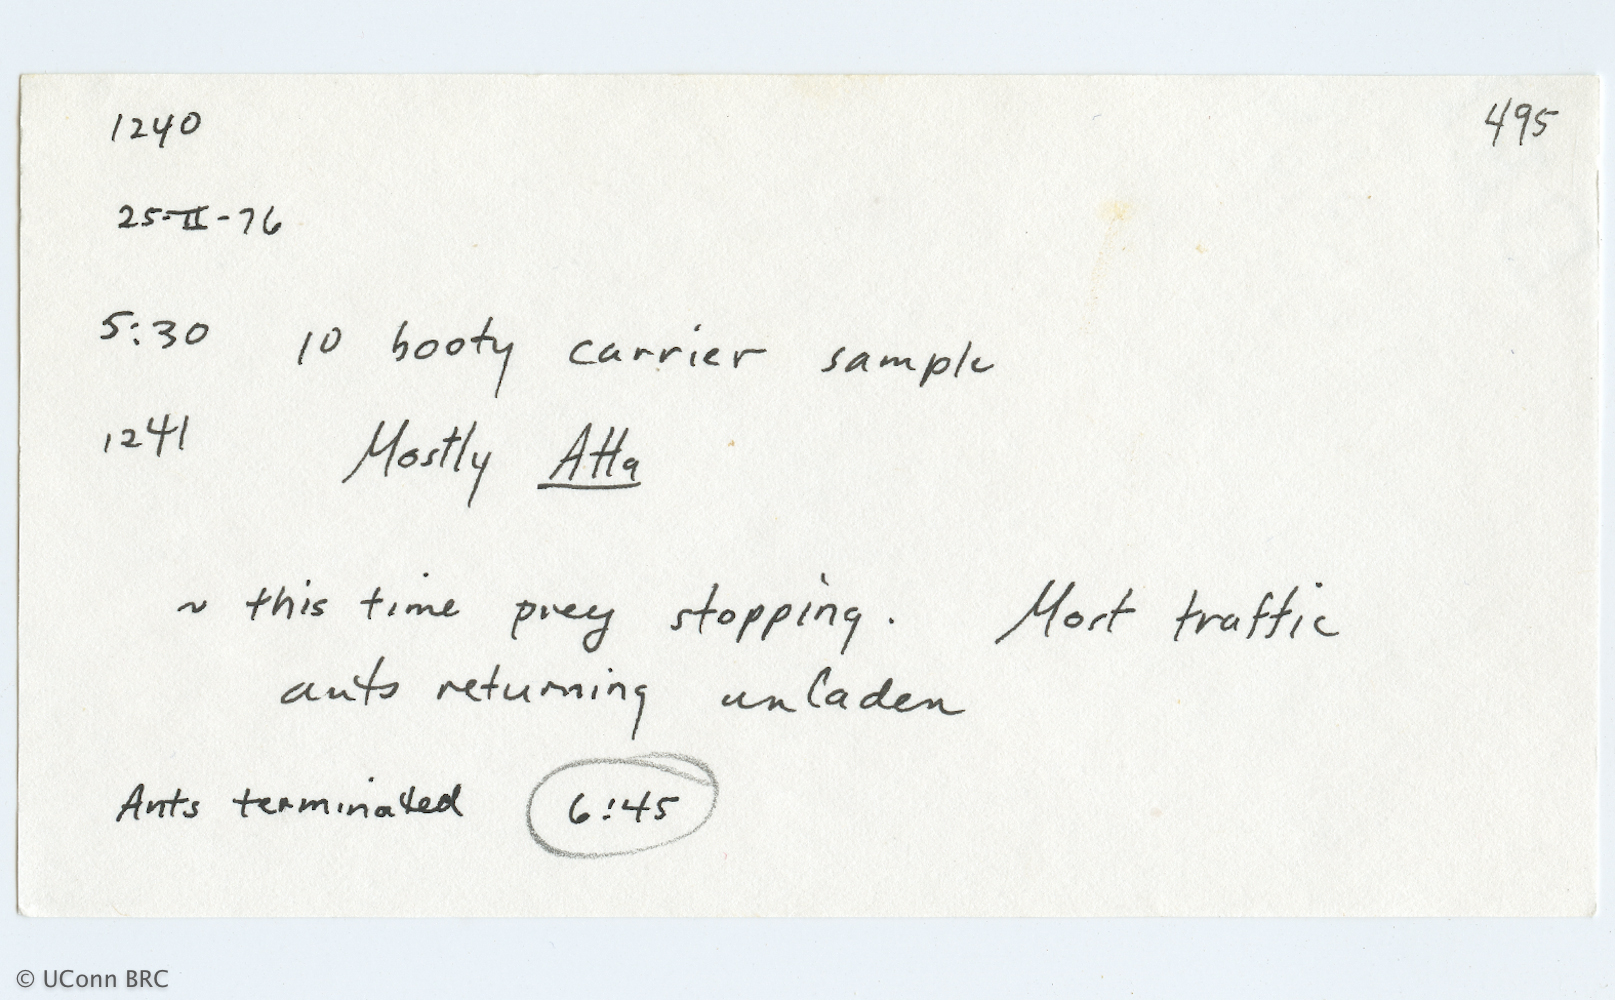 1240
495
25-II-76
5:30 10 booty carrier sample
1241 Mostly Atta
~ this time prey stopping. Most traffic
ants returning unladen
Ants terminated 6:45
© UConn BRC